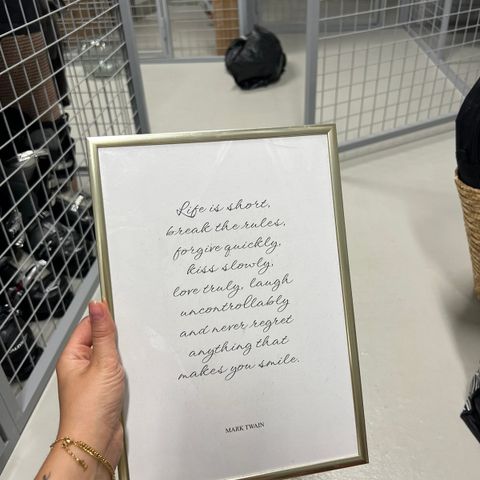 Life is short,
break the rules,
forgive quickly,
kiss slowly,
love truly, laugh
uncontrollably
and never regret
anything that
makes you smile.
MARK TWAIN